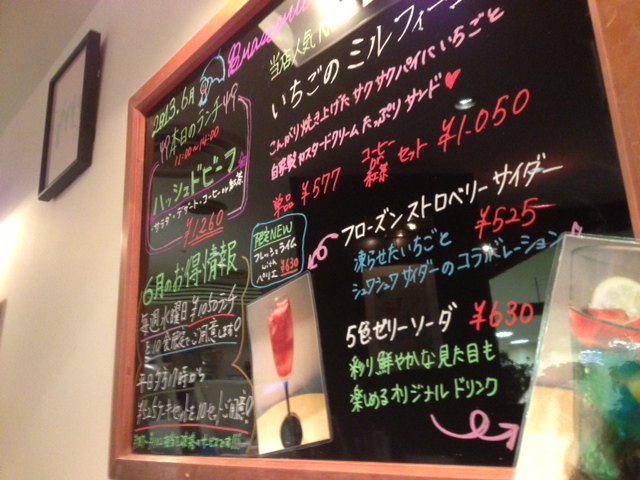 Brasserie
2013.6月
本日のランチ
11:00~14:00
ハッシュドビーフ
サラダ・デザート・コーヒーor紅茶
¥1,260
6月のお得情報
毎週水曜日¥1050ランチ
平日夕方17時から
当店人気No
いちごのミルフィーユ
こんがり焼き上げたサクサクパイにいちごと
自家製カスタードクリームたっぷりサンド♥
単品 ¥577
コーヒー
or
紅茶
セット ¥1,050
NEW
フレッシュライム
with
ペリエ ¥630
フローズンストロベリーサイダー
¥525
凍らせたいちごと
シュワシュワサイダーのコラボレーション
5色ゼリーソーダ ¥630
彩り鮮やかな見た目も
楽しめるオリジナルドリンク